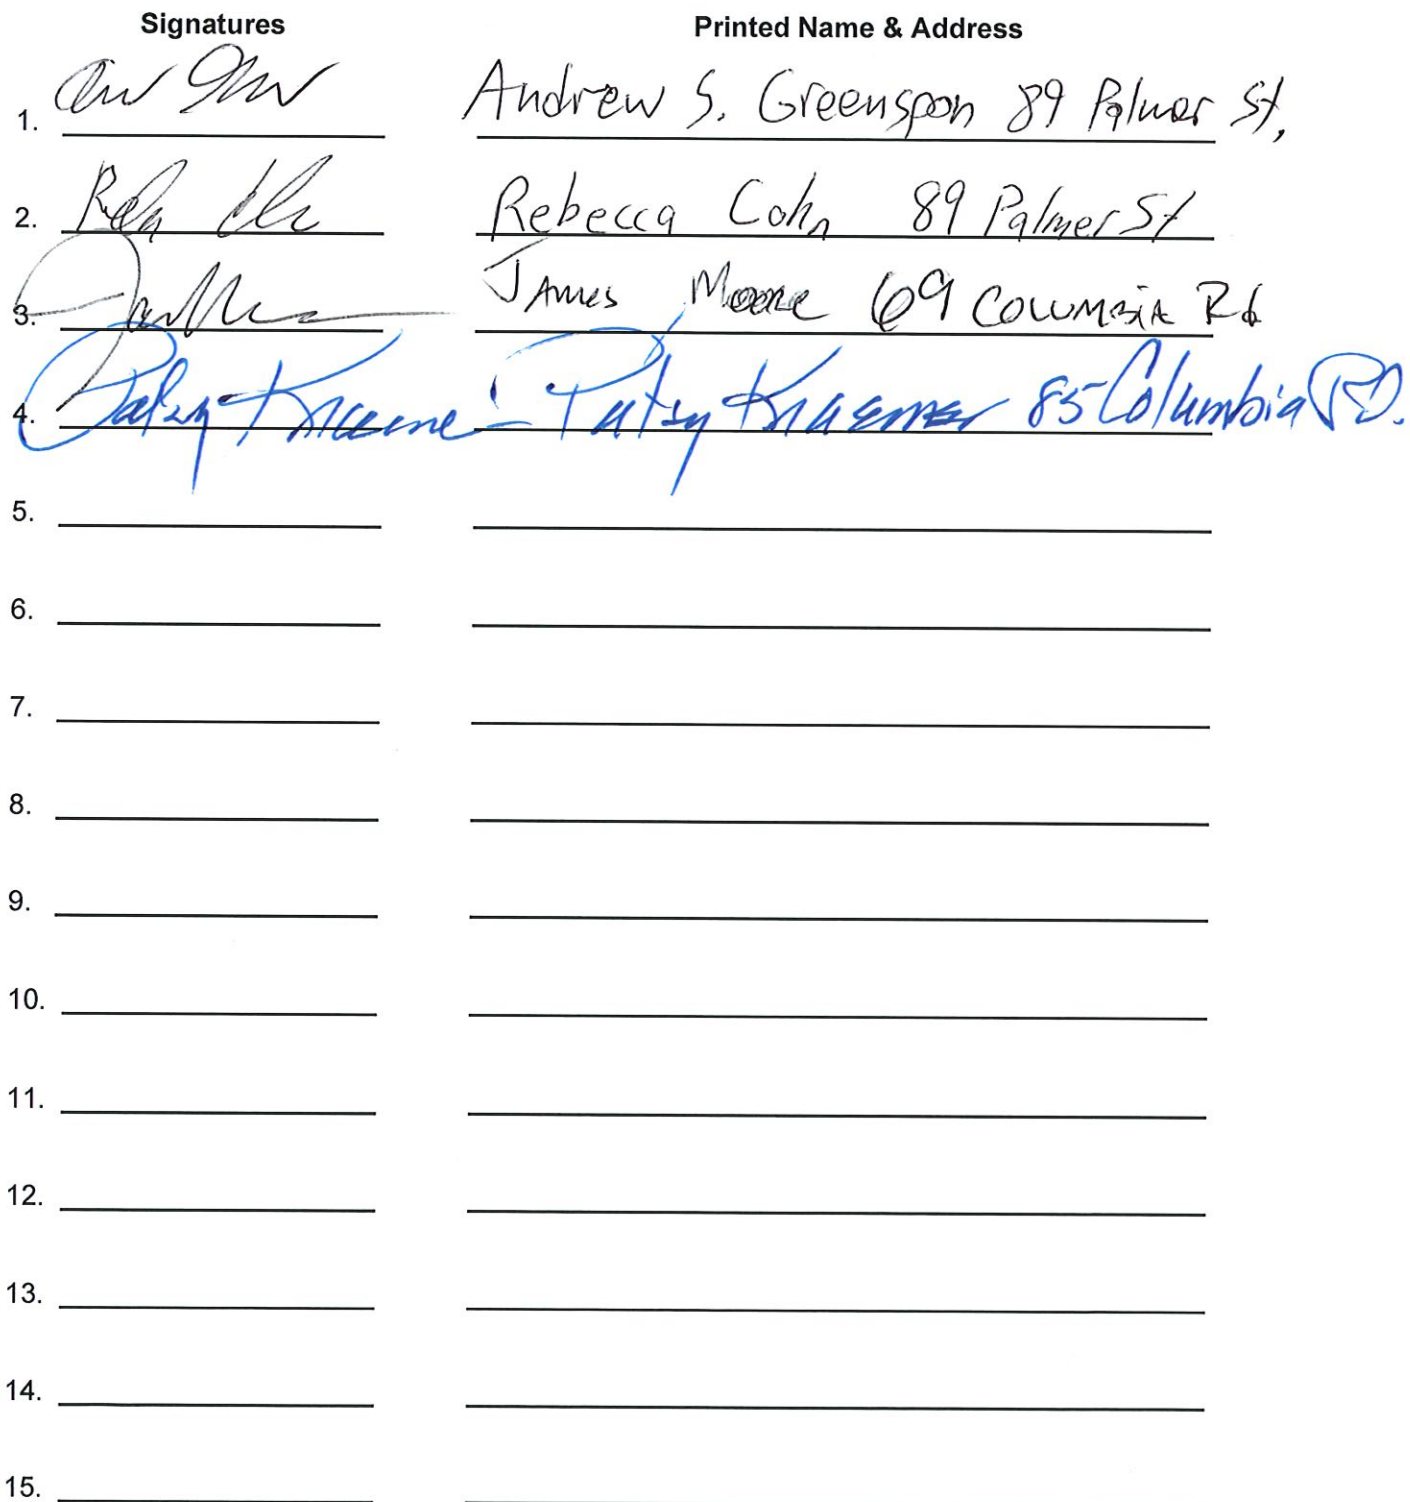 Signatures Printed Name & Address
1. Andrew S. Greenspon 89 Palmer St.
2. Rebecca Cohn 89 Palmer St
3. James Moore 69 Columbia Rd
4. Patsy Kraemer 85 Columbia RD.
5.
6.
7.
8.
9.
10.
11.
12.
13.
14.
15.